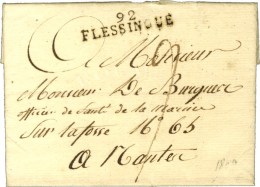 92
FLESSINGUE
A Monsieur
Monsieur De Burguer
officier de Santé de la marine
Sur la fosse N° 65
A Nantes